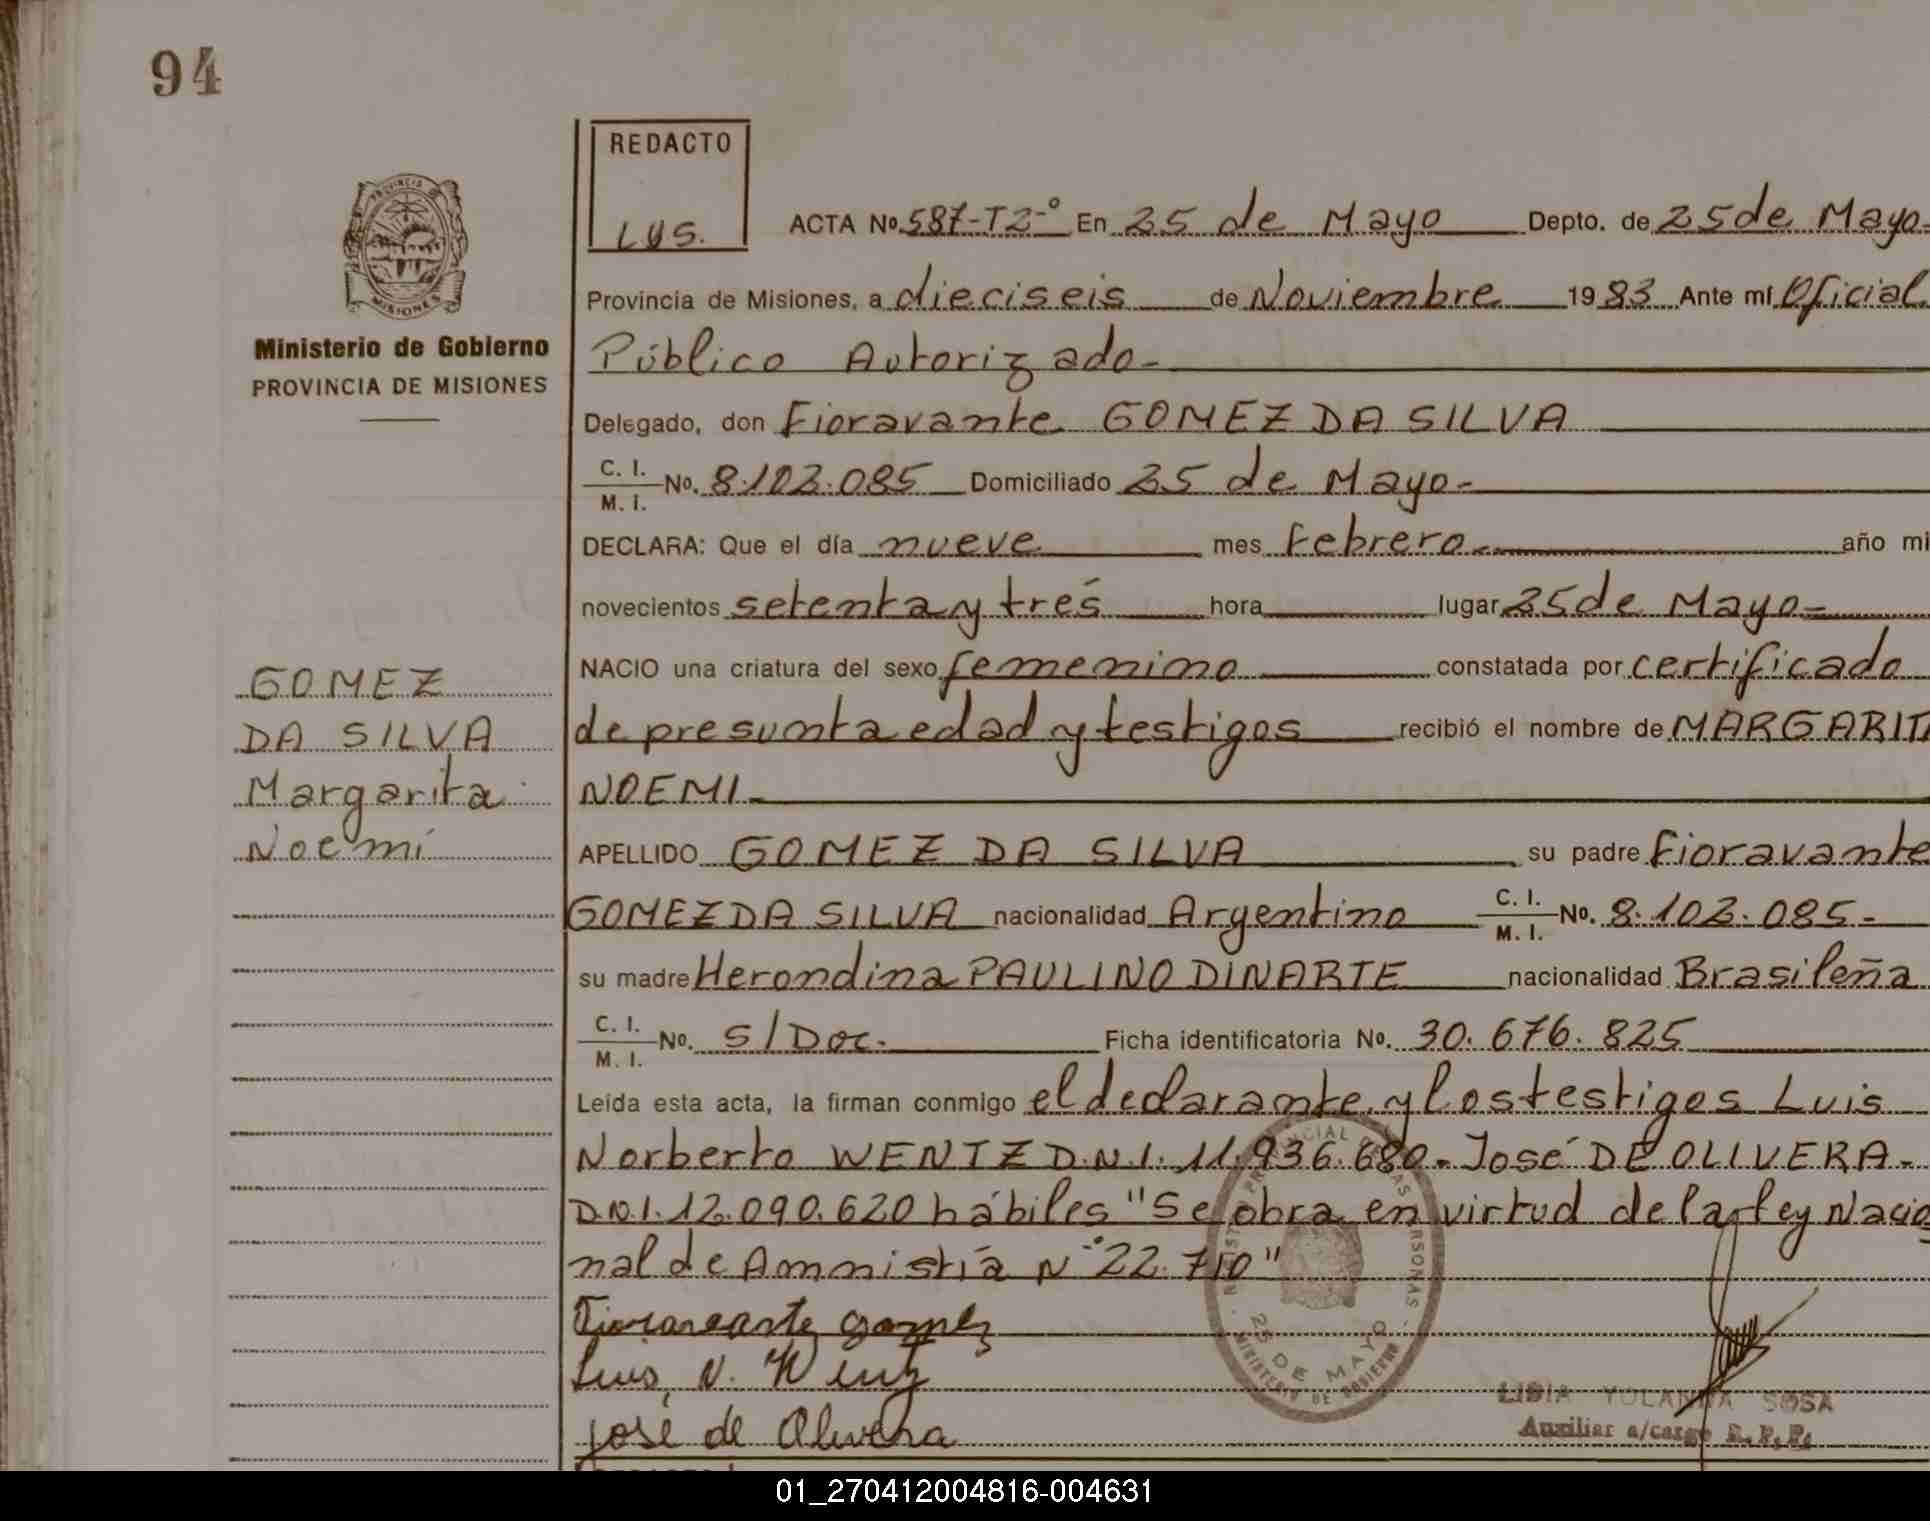 94
REDACTO
LUS.
PROVINCIA DE
MISIONES
Ministerio de Gobierno
PROVINCIA DE MISIONES
ACTA No. 587-T2-º En 25 de Mayo Depto. de 25 de Mayo-
Provincia de Misiones, a dieciseis de Noviembre 1983 Ante mí Oficial
Público Autorizado-
Delegado, don Fioravante GOMEZ DA SILVA
C. I. M. I. No. 8.102.085 Domiciliado 25 de Mayo-
DECLARA: Que el día nueve mes Febrero- año mi
novecientos setenta y trés hora lugar 25 de Mayo-
NACIO una criatura del sexo femenino constatada por certificado
de presunta edad y testigos recibió el nombre de MARGARIT
NOEMI-
APELLIDO GOMEZ DA SILVA su padre Fioravante
GOMEZ DA SILVA nacionalidad Argentino C. I. M. I. No. 8.102.085-
su madre Herondina PAULINO DINARTE nacionalidad Brasileña
C. I. M. I. No. S/Doc. Ficha identificatoria No. 30.676.825
Leída esta acta, la firman conmigo el declarante, y los testigos Luis
Norberto WENTZ D.N.I. 11.936.680- José DE OLIVERA-
D.N.I. 12.090.620 hábiles "Se obra en virtud de la Ley Nacio
nal de Ammistía Nº 22.710"
Fioravante Gomez
Luis N. Wentz
José de Olivera
GOMEZ
DA SILVA
Margarita
Noemí
25 DE MAYO
MINISTERIO DE GOBIERNO
LIDIA YOLANDA SOSA
Auxiliar a/cargo R. P. P.
01_270412004816-004631